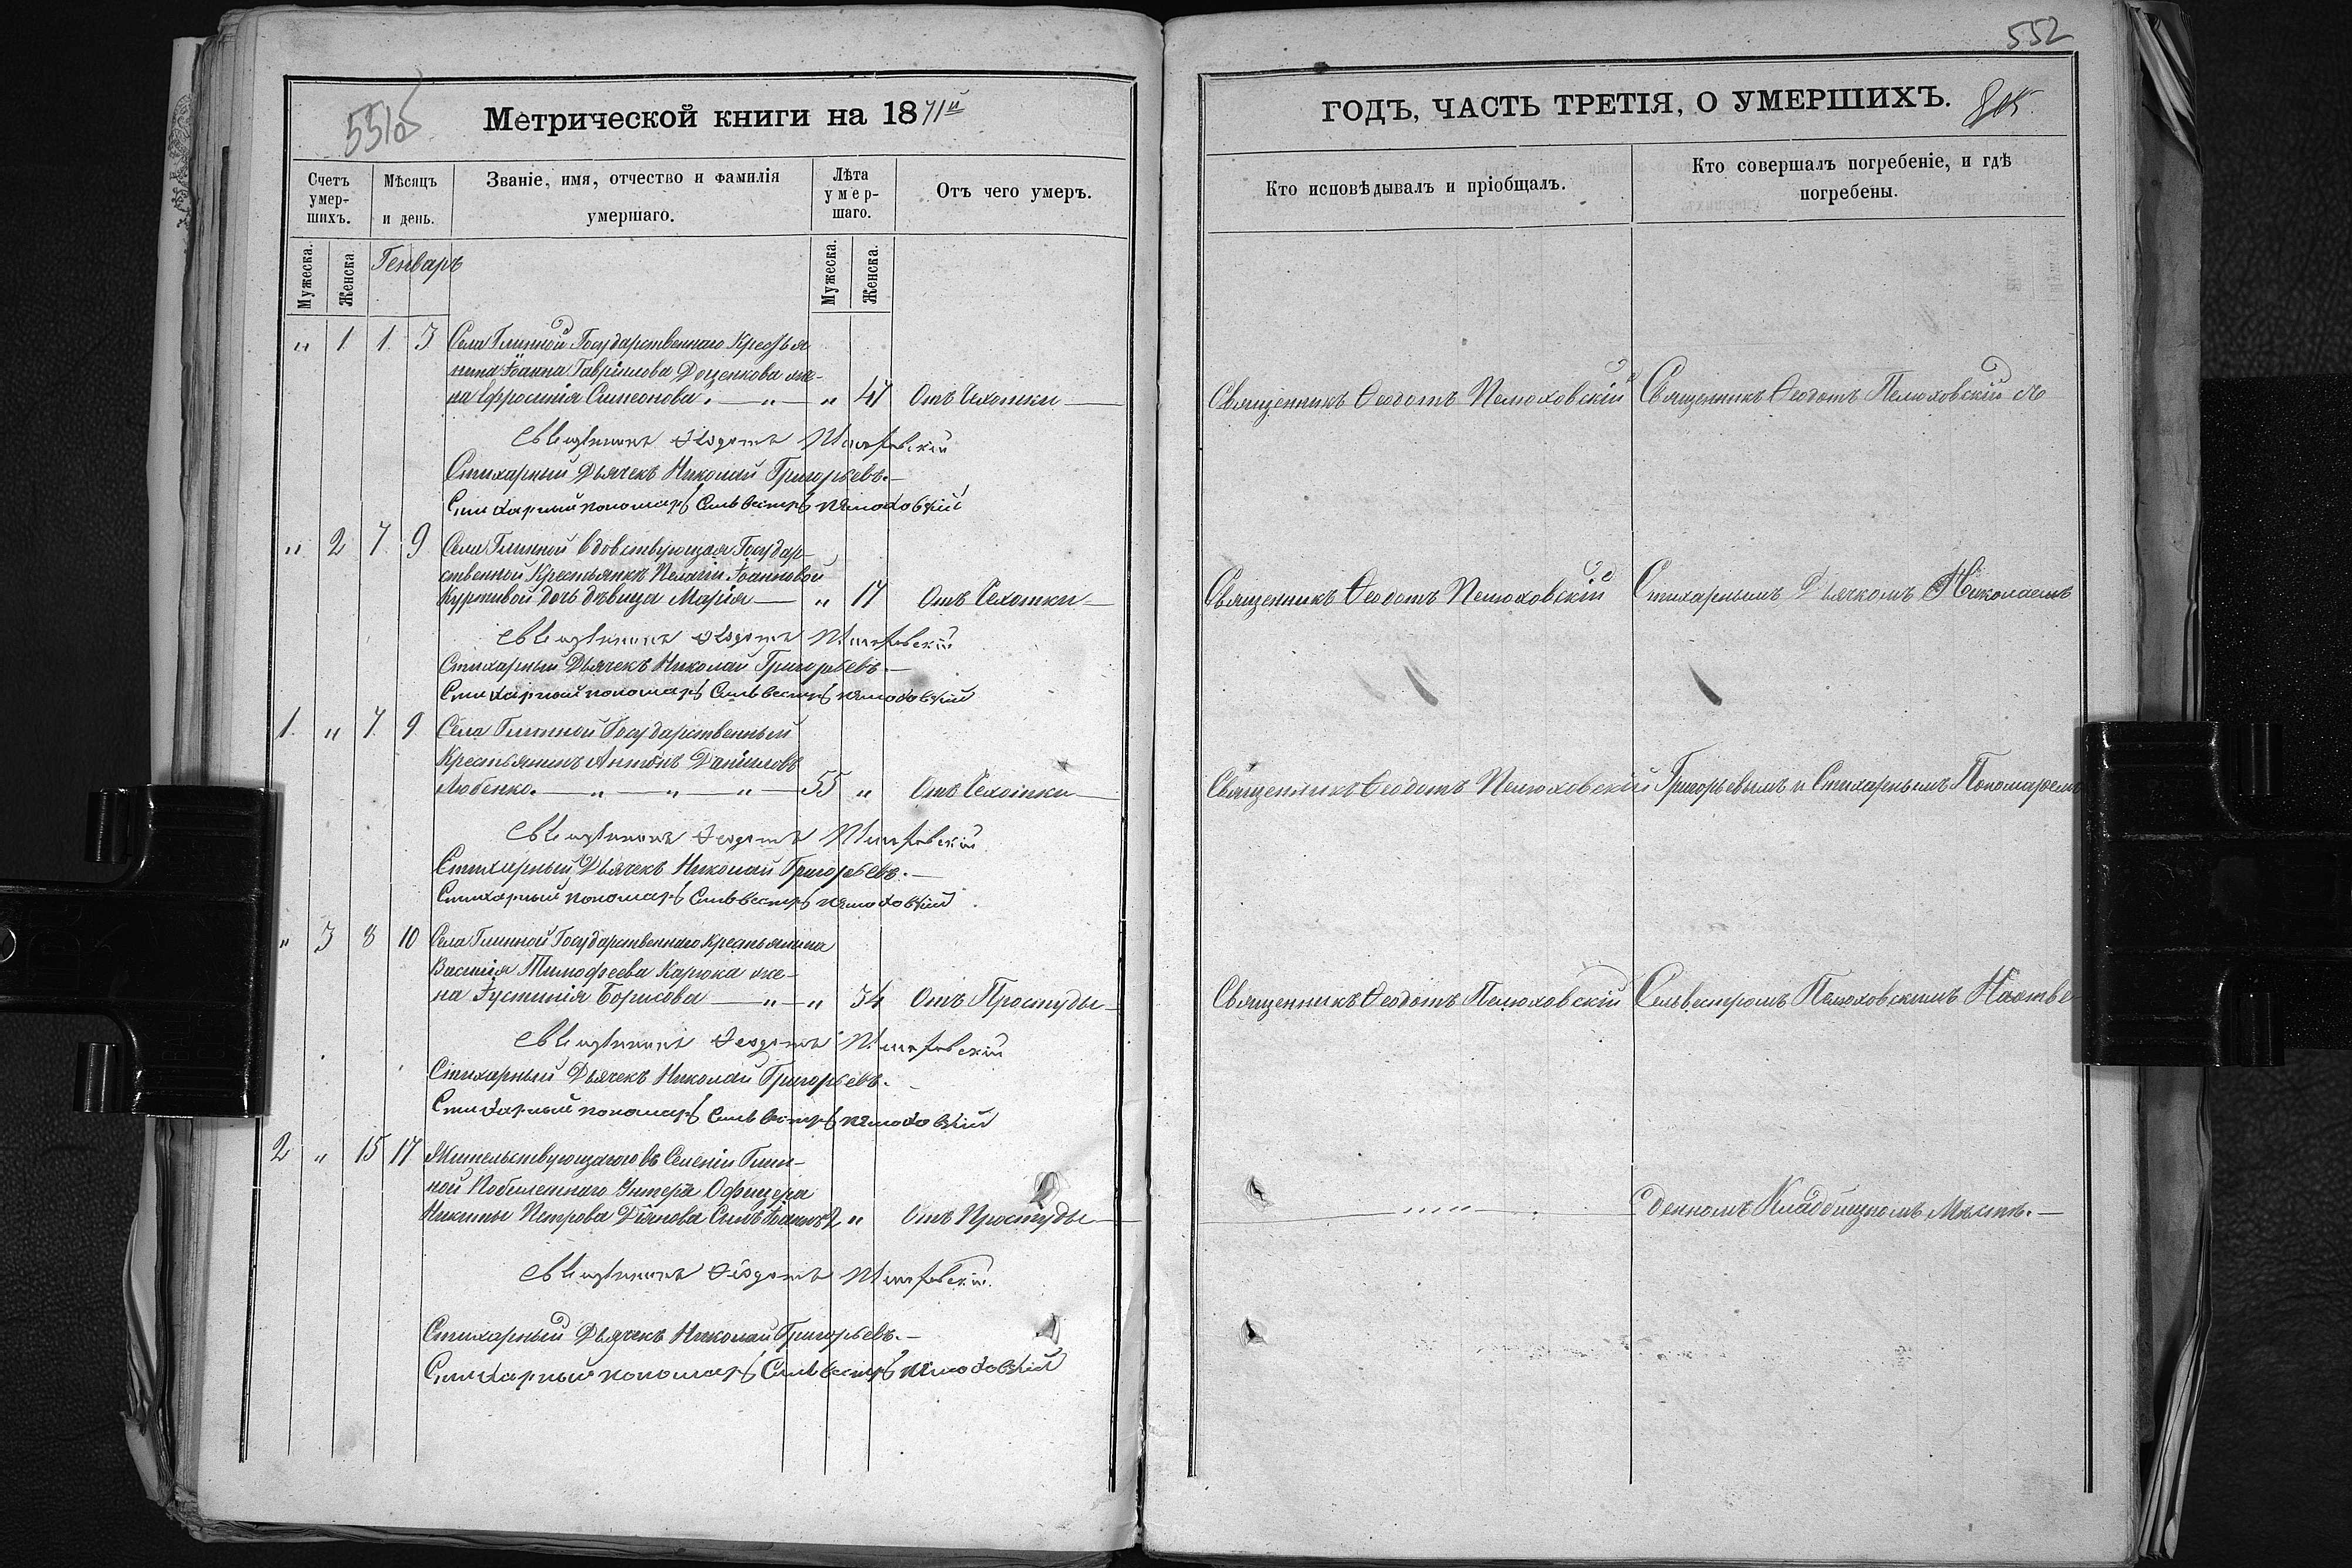 552
Метрической книги на 1871й
ГОДЪ, ЧАСТЬ ТРЕТІЯ, О УМЕРШИХЪ.
Счетъ умер-шихъ.
Мѣсяцъ и день.
Званіе, имя, отчество и фамилія
умершаго.
Лѣта умер-шаго.
Отъ чего умеръ.
Мужеска.
Женска
Генварь
Мужеска.
Женска.
" 1 1 3 Села Глинной Государственнаго Крестья
нина Іоанна Гаврілова Доценкова же-
на Ефросинія Симеонова. — " — " 47 Отъ Чахотки —
Священникъ Ѳеодотъ Пелюховскій
Стихарный Дьячекъ Николай Григорьевъ. —
Стихарный пономарь Сильвестръ Пелюховскій
" 2 7 9 Села Глинной Вдовствующая Государ-
ственной Крестьянкѣ Пелагіи Іоанновой
дочь дѣвица Марія — " 17 Отъ Чахотки —
Священникъ Ѳеодотъ Пелюховскій
Стихарный Дьячекъ Николай Григорьевъ. —
Стихарный пономарь Сильвестръ Пелюховскій
1. " 7 9 Села Глинной Государственный
Крестьянинъ Антонъ Даниловъ
Любенко. — " — " — " — 55 " Отъ Чахотки —
Священникъ Ѳеодотъ Пелюховскій
Стихарный Дьячекъ Николай Григорьевъ. —
Стихарный пономарь Сильвестръ Пелюховскій
" 3 8 10 Села Глинной Государственнаго Крестьянина
Василія Тимофеева Карюка же-
на Іустинія Борисова — " — " 34 Отъ Простуды —
Священникъ Ѳеодотъ Пелюховскій
Стихарный Дьячекъ Николай Григорьевъ. —
Стихарный пономарь Сильвестръ Пелюховскій
2 " 15 17 Жительствующаго въ Селеніи Глин-
ной Унтеръ Офицера
Никиты Петрова Сынъ Іоаннъ 2 " Отъ Простуды —
Священникъ Ѳеодотъ Пелюховскій
Стихарный Дьячекъ Николай Григорьевъ. —
Стихарный пономарь Сильвестръ Пелюховскій
Кто исповѣдывалъ и пріобщалъ.
Кто совершалъ погребеніе, и гдѣ
погребены.
Священникъ Ѳеодотъ Пелюховскій
Священникъ Ѳеодотъ Пелюховскій со
Священникъ Ѳеодотъ Пелюховскій
Стихарнымъ Дьячкомъ Николаемъ
Священникъ Ѳеодотъ Пелюховскій
Григорьевымъ и Стихарнымъ Пономаремъ
Священникъ Ѳеодотъ Пелюховскій
Сильвестромъ Пелюховскимъ На отве
денномъ Кладбищномъ Мѣстѣ. —